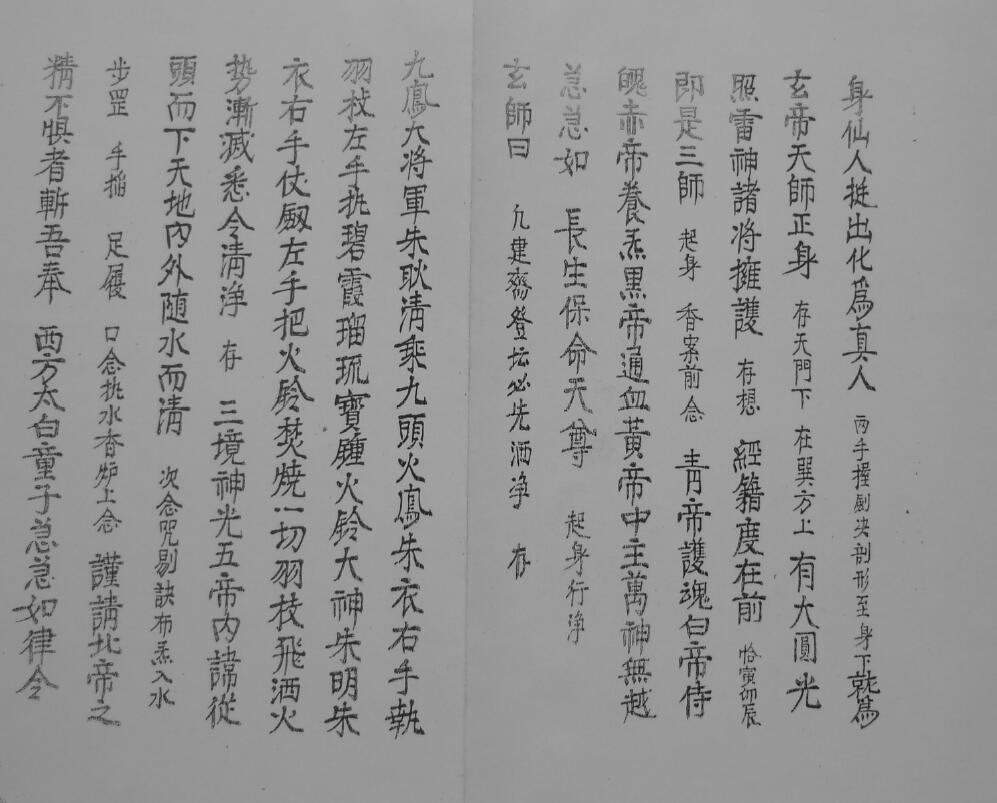 身仙人挺出化爲真人 兩手握劍决剖形至身下就爲
玄帝天師正身 存天門下 在巽方上 有大圓光
照雷神諸将擁護 存想 經籍度在前 恰寅卯辰
即是三師 起身 香案前念 青帝護魂白帝侍
魄赤帝養炁黑帝通血黃帝中主萬神無越
急急如 長生保命天尊 起身行净
玄師曰 凢建齋登坛必先洒净 存
九鳳大将軍朱耿清乗九頭火鳳朱衣右手執
羽枝左手執碧霞瑠琉寶鍾火鈴大神朱明朱
衣右手仗劔左手把火鈴焚燒一切羽枝飛洒火
势漸减悉令清净 存 三境神光五帝内諱從
頭而下天地內外随水而清 次念咒剔訣布炁入水
步罡 手掐 足履 口念执水香炉上念 謹請北帝之
精不惧者斬吾奉 西方太白童子急急如律令